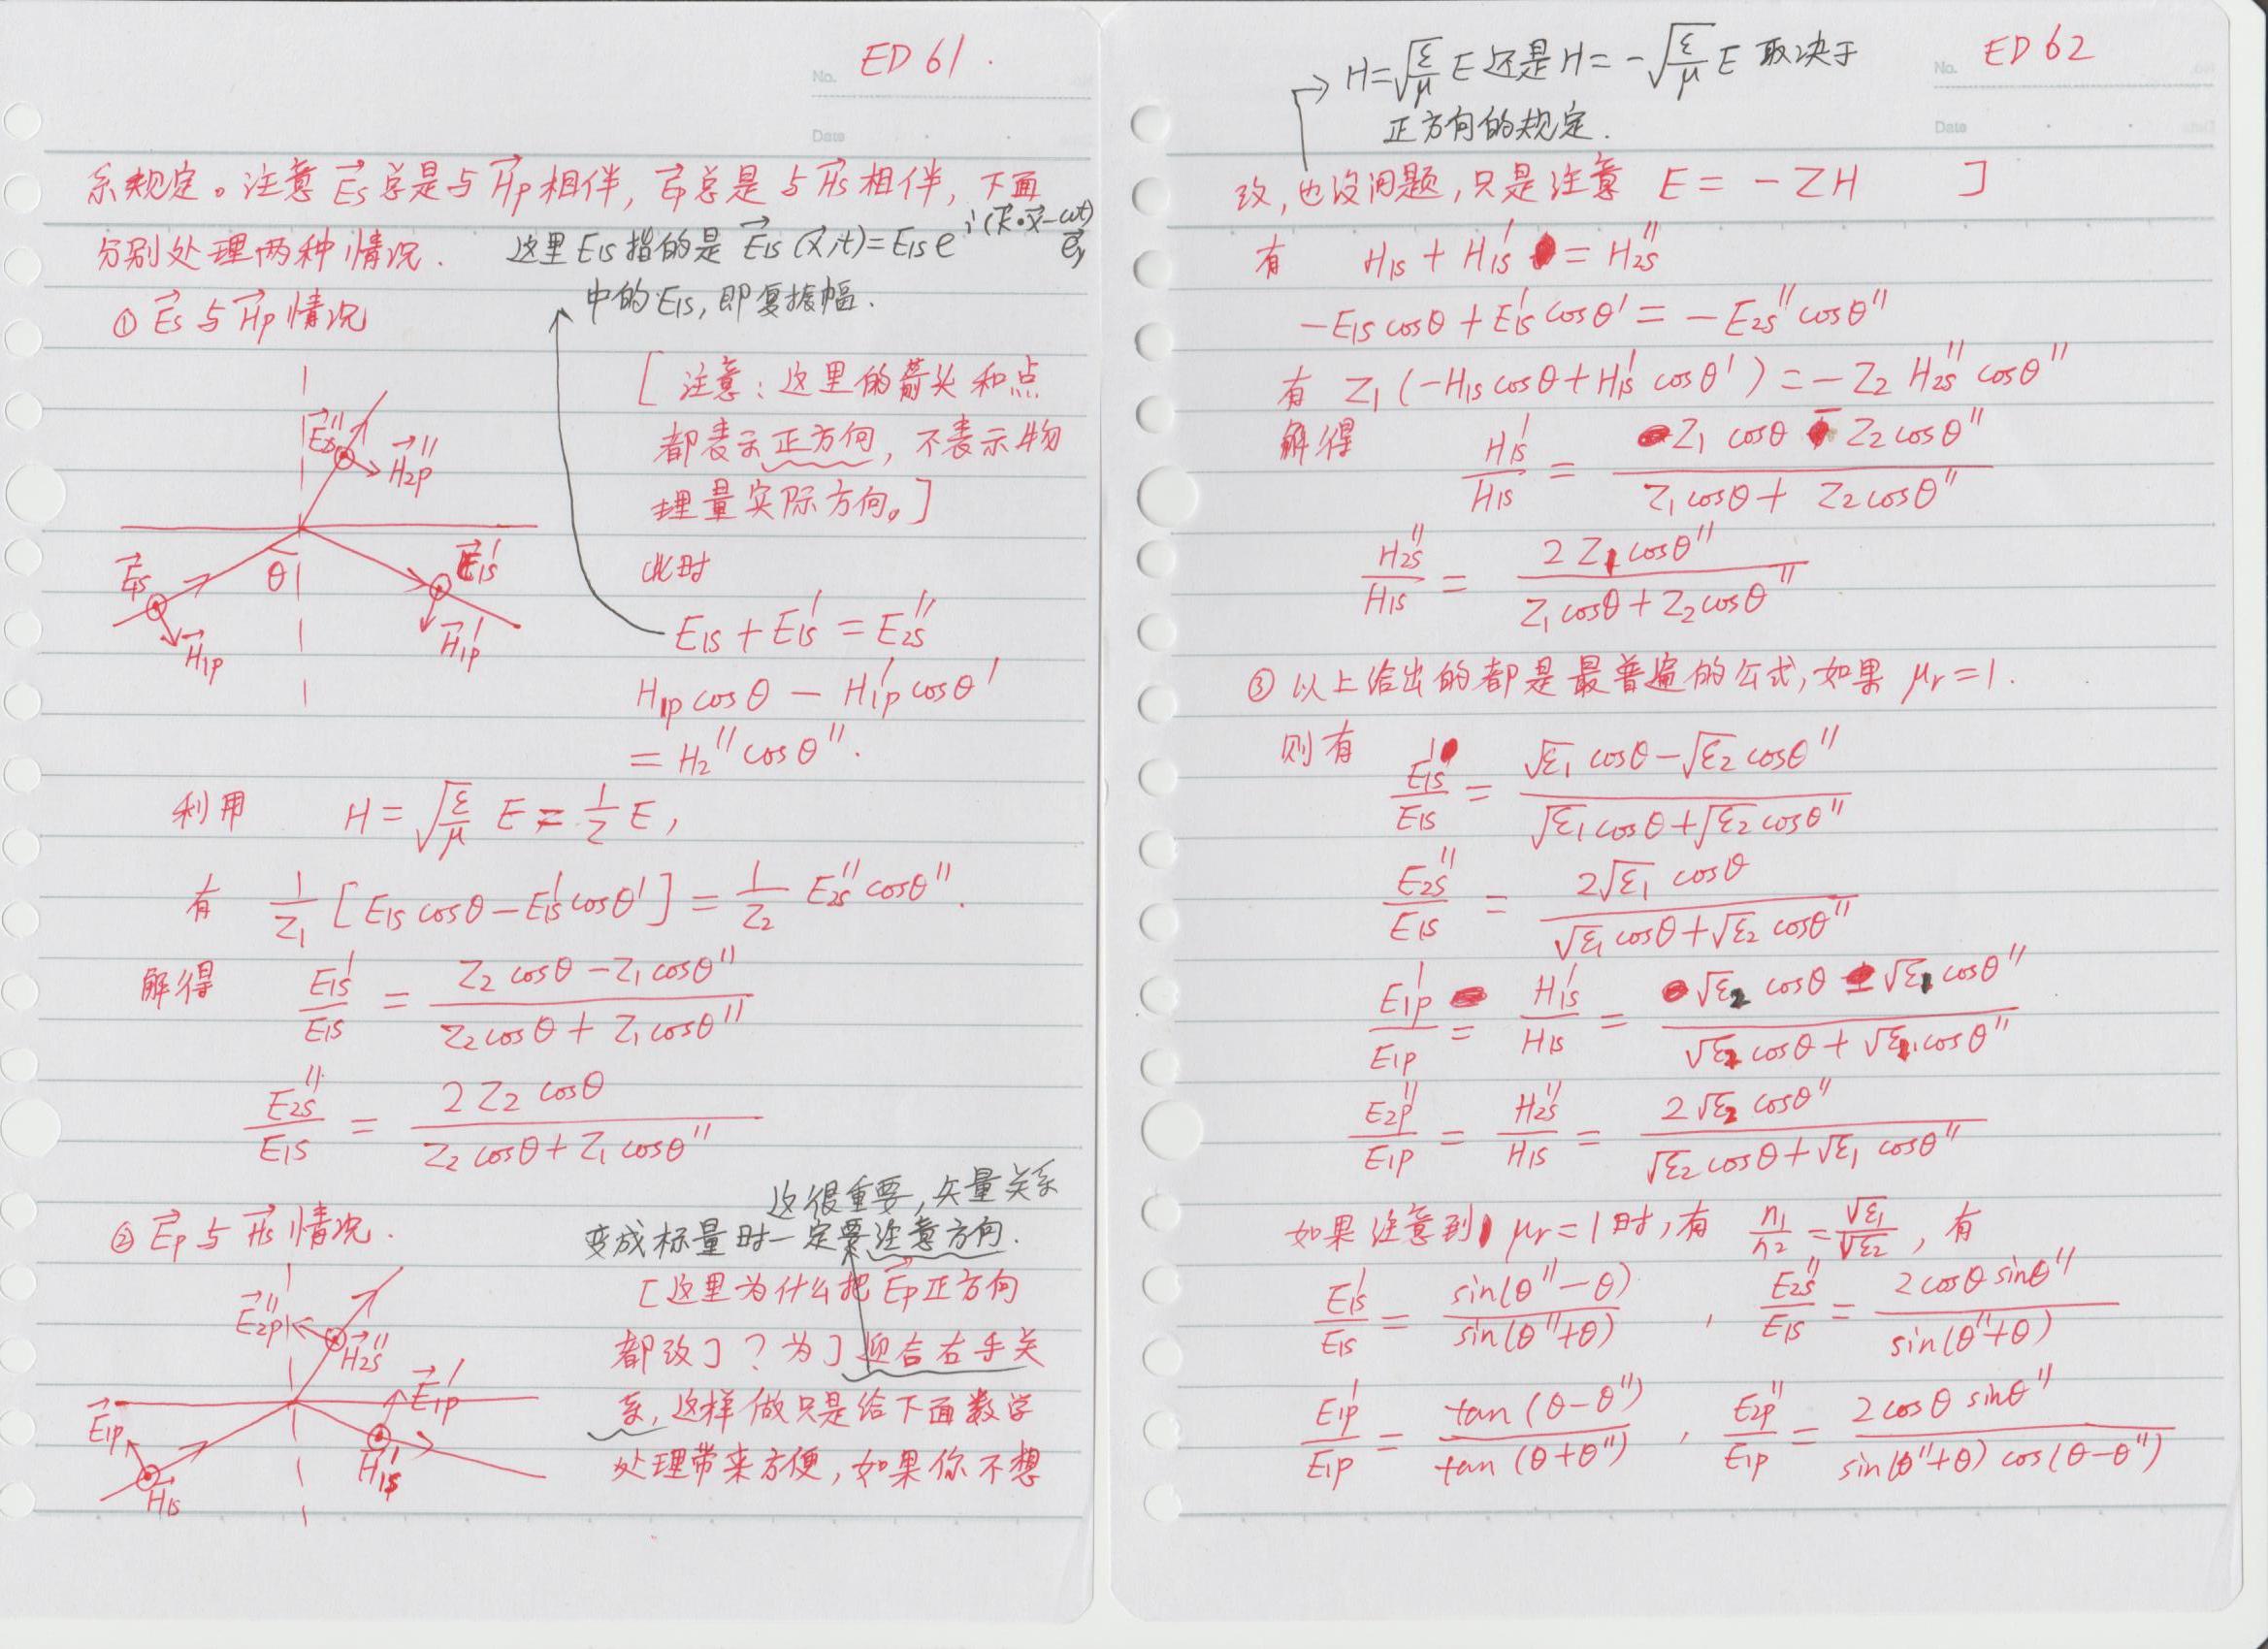 ED 61.
No.
Date
系规定。注意 $\vec{E}_S$ 总是与 $\vec{H}_P$ 相伴, $\vec{E}_P$ 总是与 $\vec{H}_S$ 相伴, 下面
分别处理两种情况.
这里 $E_{1S}$ 指的是 $\vec{E}_{1S}(\vec{x},t)=E_{1S}e^{i(\vec{k}\cdot\vec{x}-\omega t)}\vec{e}_y$
中的 $E_{1S}$, 即复振幅.
① $\vec{E}_S$ 与 $\vec{H}_P$ 情况
[ 注意: 这里的箭头和点
都表示正方向, 不表示物
理量实际方向。]
$\vec{E}_{2S}''$
$\vec{H}_{2P}''$
$\vec{E}_{1S}$
θ
$\vec{E}_{1S}'$
$\vec{H}_{1P}$
$\vec{H}_{1P}'$
此时
$E_{1S}+E_{1S}'=E_{2S}''$
$H_{1P}\cos\theta-H_{1P}'\cos\theta'$
$=H_2''\cos\theta''.$
利用 $H=\sqrt{\frac{\varepsilon}{\mu}}E=\frac{1}{Z}E,$
有 $\frac{1}{Z_1}[E_{1S}\cos\theta-E_{1S}'\cos\theta']=\frac{1}{Z_2}E_{2S}''\cos\theta''.$
解得 $\frac{E_{1S}'}{E_{1S}}=\frac{Z_2\cos\theta-Z_1\cos\theta''}{Z_2\cos\theta+Z_1\cos\theta''}$
$\frac{E_{2S}''}{E_{1S}}=\frac{2Z_2\cos\theta}{Z_2\cos\theta+Z_1\cos\theta''}$
② $\vec{E}_P$ 与 $\vec{H}_S$ 情况.
这很重要, 矢量关系
变成标量时一定要注意方向.
[ 这里为什么把 $\vec{E}_P$ 正方向
都改了? 为了迎合右手关
系, 这样做只是给下面数学
处理带来方便, 如果你不想
$\vec{E}_{2P}''$
$\vec{H}_{2S}''$
$\vec{E}_{1P}'$
$\vec{E}_{1P}$
$\vec{H}_{1S}'$
$\vec{H}_{1S}$
ED 62
No.
Date
$H=\sqrt{\frac{\varepsilon}{\mu}}E$ 还是 $H=-\sqrt{\frac{\varepsilon}{\mu}}E$ 取决于
正方向的规定.
改, 也没问题, 只是注意 $E=-ZH$ ]
有 $H_{1S}+H_{1S}'=H_{2S}''$
$-E_{1S}\cos\theta+E_{1S}'\cos\theta'=-E_{2S}''\cos\theta''$
有 $Z_1(-H_{1S}\cos\theta+H_{1S}'\cos\theta')=-Z_2H_{2S}''\cos\theta''$
解得 $\frac{H_{1S}'}{H_{1S}}=\frac{Z_1\cos\theta-Z_2\cos\theta''}{Z_1\cos\theta+Z_2\cos\theta''}$
$\frac{H_{2S}''}{H_{1S}}=\frac{2Z_1\cos\theta''}{Z_1\cos\theta+Z_2\cos\theta''}$
③ 以上给出的都是最普遍的公式, 如果 $\mu_r=1$.
则有 $\frac{E_{1S}'}{E_{1S}}=\frac{\sqrt{\varepsilon_1}\cos\theta-\sqrt{\varepsilon_2}\cos\theta''}{\sqrt{\varepsilon_1}\cos\theta+\sqrt{\varepsilon_2}\cos\theta''}$
$\frac{E_{2S}''}{E_{1S}}=\frac{2\sqrt{\varepsilon_1}\cos\theta}{\sqrt{\varepsilon_1}\cos\theta+\sqrt{\varepsilon_2}\cos\theta''}$
$\frac{E_{1P}'}{E_{1P}}=\frac{H_{1S}'}{H_{1S}}=\frac{\sqrt{\varepsilon_2}\cos\theta-\sqrt{\varepsilon_1}\cos\theta''}{\sqrt{\varepsilon_2}\cos\theta+\sqrt{\varepsilon_1}\cos\theta''}$
$\frac{E_{2P}''}{E_{1P}}=\frac{H_{2S}''}{H_{1S}}=\frac{2\sqrt{\varepsilon_2}\cos\theta''}{\sqrt{\varepsilon_2}\cos\theta+\sqrt{\varepsilon_1}\cos\theta''}$
如果注意到 $\mu_r=1$ 时, 有 $\frac{n_1}{n_2}=\frac{\sqrt{\varepsilon_1}}{\sqrt{\varepsilon_2}}$, 有
$\frac{E_{1S}'}{E_{1S}}=\frac{\sin(\theta''-\theta)}{\sin(\theta''+\theta)}$, $\frac{E_{2S}''}{E_{1S}}=\frac{2\cos\theta\sin\theta''}{\sin(\theta''+\theta)}$
$\frac{E_{1P}'}{E_{1P}}=\frac{\tan(\theta-\theta'')}{\tan(\theta+\theta'')}$, $\frac{E_{2P}''}{E_{1P}}=\frac{2\cos\theta\sin\theta''}{\sin(\theta''+\theta)\cos(\theta-\theta'')}$